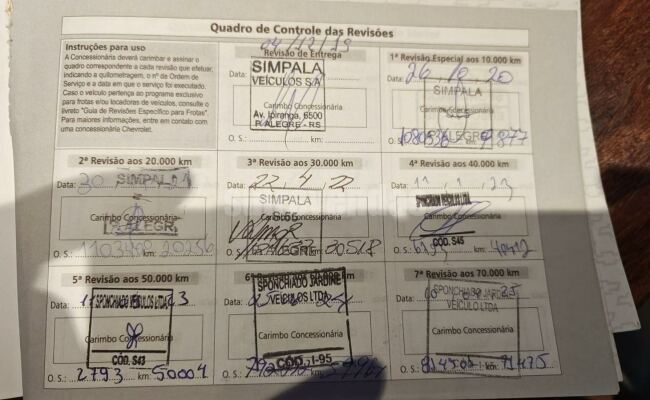 Quadro de Controle das Revisões
Instruções para uso
A Concessionária deverá carimbar e assinar o
quadro correspondente a cada revisão que efetuar,
indicando a quilometragem, o nº da Ordem de
Serviço e a data em que o serviço foi executado.
Caso o veículo pertença ao programa exclusivo
para frotas e/ou locadoras de veículos, consulte o
livreto "Guia de Revisões Específico para Frotas".
Para maiores informações, entre em contato com
uma concessionária Chevrolet.
04/12/19
Revisão de Entrega
Data:
SIMPALA
VEÍCULOS S/A
Carimbo Concessionária
Av. Ipiranga, 6500
P. ALEGRE - RS
O. S.: km:
1ª Revisão Especial aos 10.000 km
Data: 26 20
SIMPALA
Carimbo Concessionária
ALEGRE
O. S.: km: 9877
2ª Revisão aos 20.000 km
Data: 30
SIMPALA
Carimbo Concessionária
ALEGR
O. S.: km: 20256
3ª Revisão aos 30.000 km
Data: 22 4 22
SIMPALA
Carimbo Concessionária
ALEGRE
O. S.: km: 30518
4ª Revisão aos 40.000 km
Data: 11 1 23
SPONCHIADO VEÍCULOS LTDA.
Carimbo Concessionária
COD. S45
O. S.: km:
5ª Revisão aos 50.000 km
Data: 23
SPONCHIADO VEÍCULOS LTDA
Carimbo Concessionária
CÓD. S43
O. S.: 2793 km: 50004
km
Data:
SPONCHIADO JARDINE
VEÍCULOS LTDA
Carimbo Concessionária
COD. I-95
O. S.: km:
7ª Revisão aos 70.000 km
Data: 25
SPONCHIADO JARDINE
VEÍCULO LTDA
Carimbo Concessionária
O. S.: km: 71475